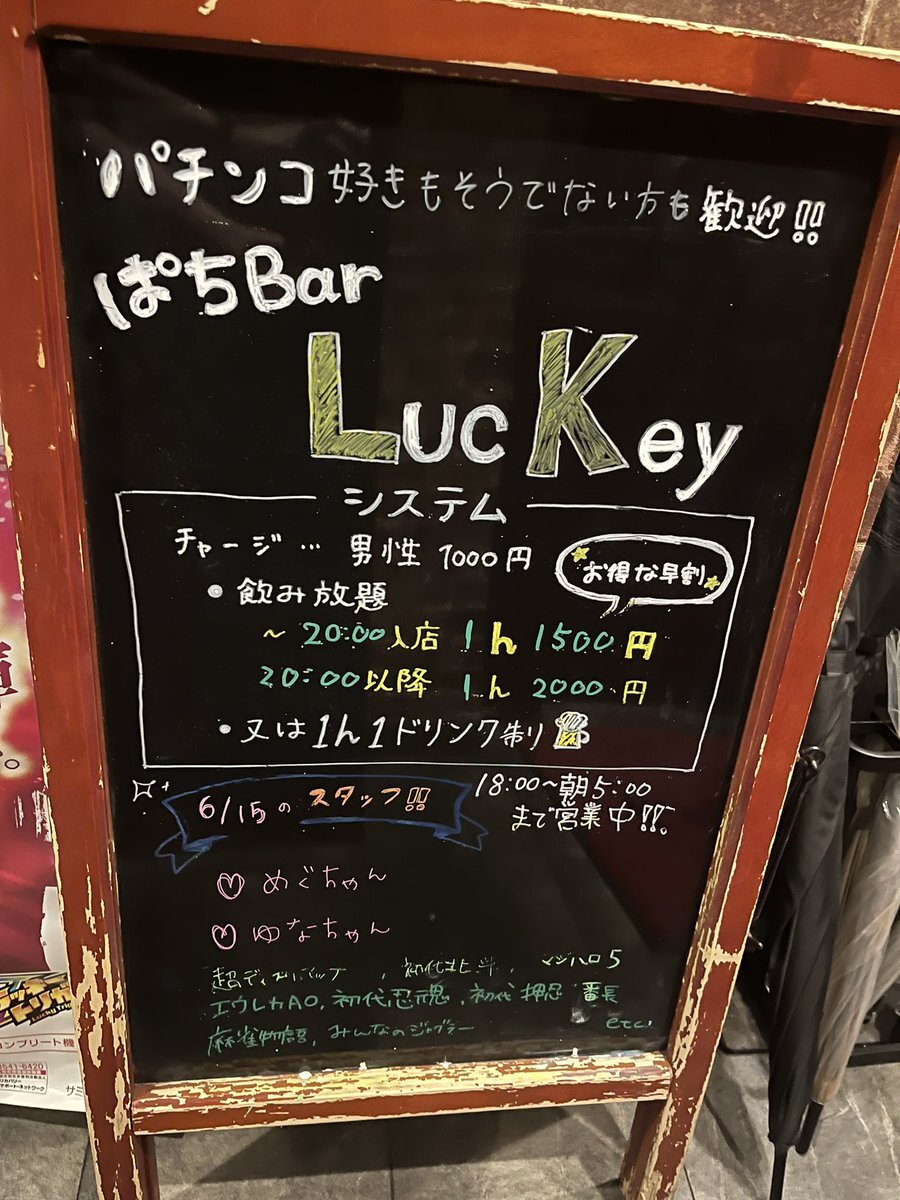 パチンコ好きもそうでない方も歓迎!!
ぱちBar
LucKey
システム
チャージ… 男性 1000円
お得な早割
・飲み放題
~20:00入店 1h 1500円
20:00以降 1h 2000円
・又は1h1ドリンク制り
6/15のスタッフ!!
18:00~朝5:00
まで営業中!!。
♡めぐちゃん
♡ゆなちゃん
初代北斗, マジハロ5
エウレカAO, 初代忍魂, 初代押忍番長
麻雀物語, みんなのジャグラー etc.
Lucky Trig
コンプリート機
3541-6420
リカバリー
サポート・ネットワーク
サミ